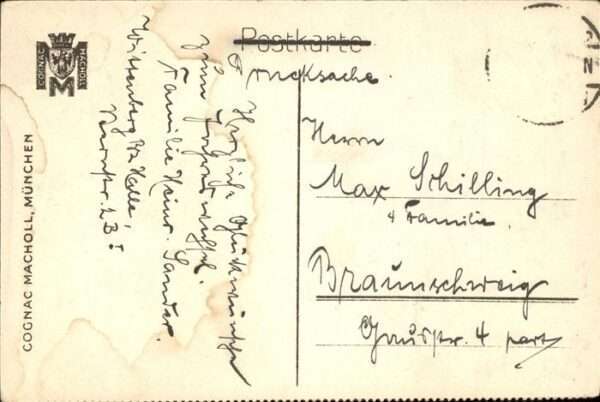 COGNAC MACHOLL
M
COGNAC MACHOLL, MÜNCHEN
Postkarte
Drucksache.
Herzliche Glückwünsche
zum Jahreswechsel.
Familie Heinr. Sander.
Wittenberg Bz Halle,
I
Herrn
Max Schilling
& Familie.
Braunschweig
Gausstr. 4 part